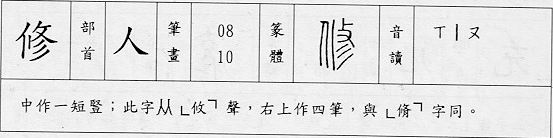 修 部首 人 筆畫 08 10 篆體 修 音讀 ㄒㄧㄡ
中作一短豎；此字从「攸」聲，右上作四筆，與「脩」字同。